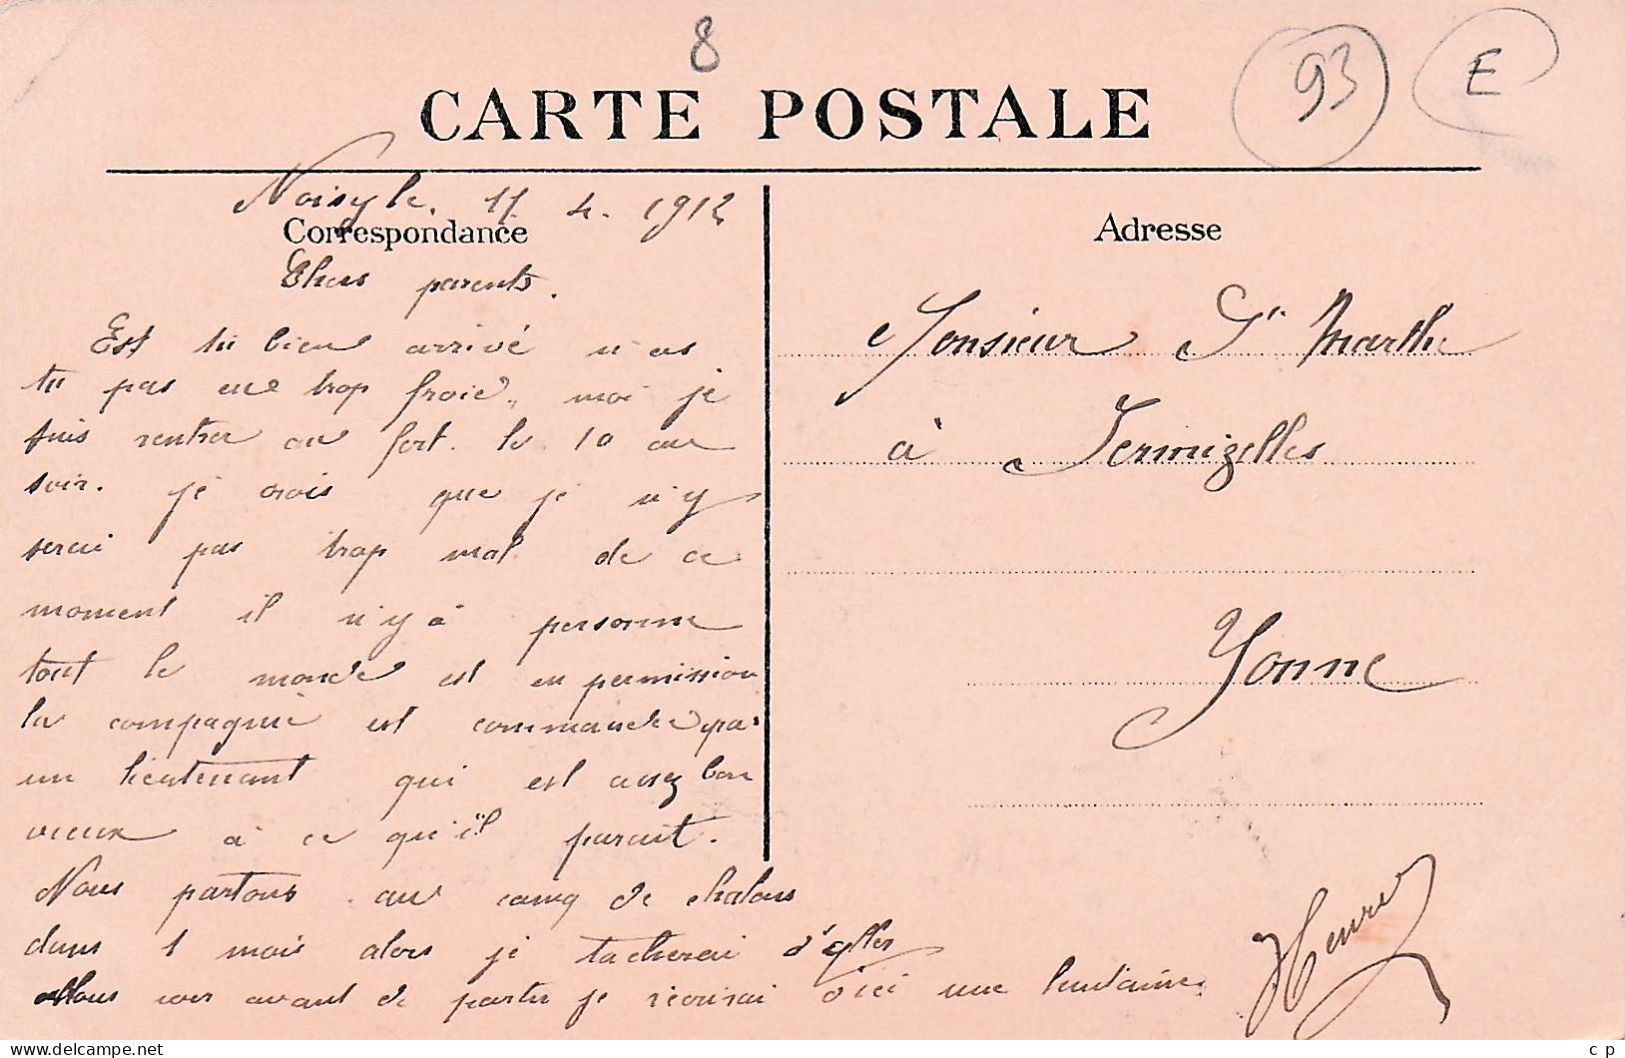 8
93
E
CARTE POSTALE
Noisy le, 11 4. 1912
Correspondance
Chers parents.
Est tu bien arrivé n'as
tu pas eue trop froid, moi je
suis rentrer au fort le 10 au
soir. je crois que je n'y
serai pas trop mal de ce
moment il n'y à personne
tout le monde est en permission
la compagnie est commandée par
un lieutenant qui est assez bon
vieux à ce qu'il parait.
Nous partons au camp de chalons
dans 1 mois alors je tacherai d'aller
vous voir avant de partir je récrirai d'ici une huitaine
Henri
Adresse
Monsieur St Marthe
à Sermizelles
Yonne
c p